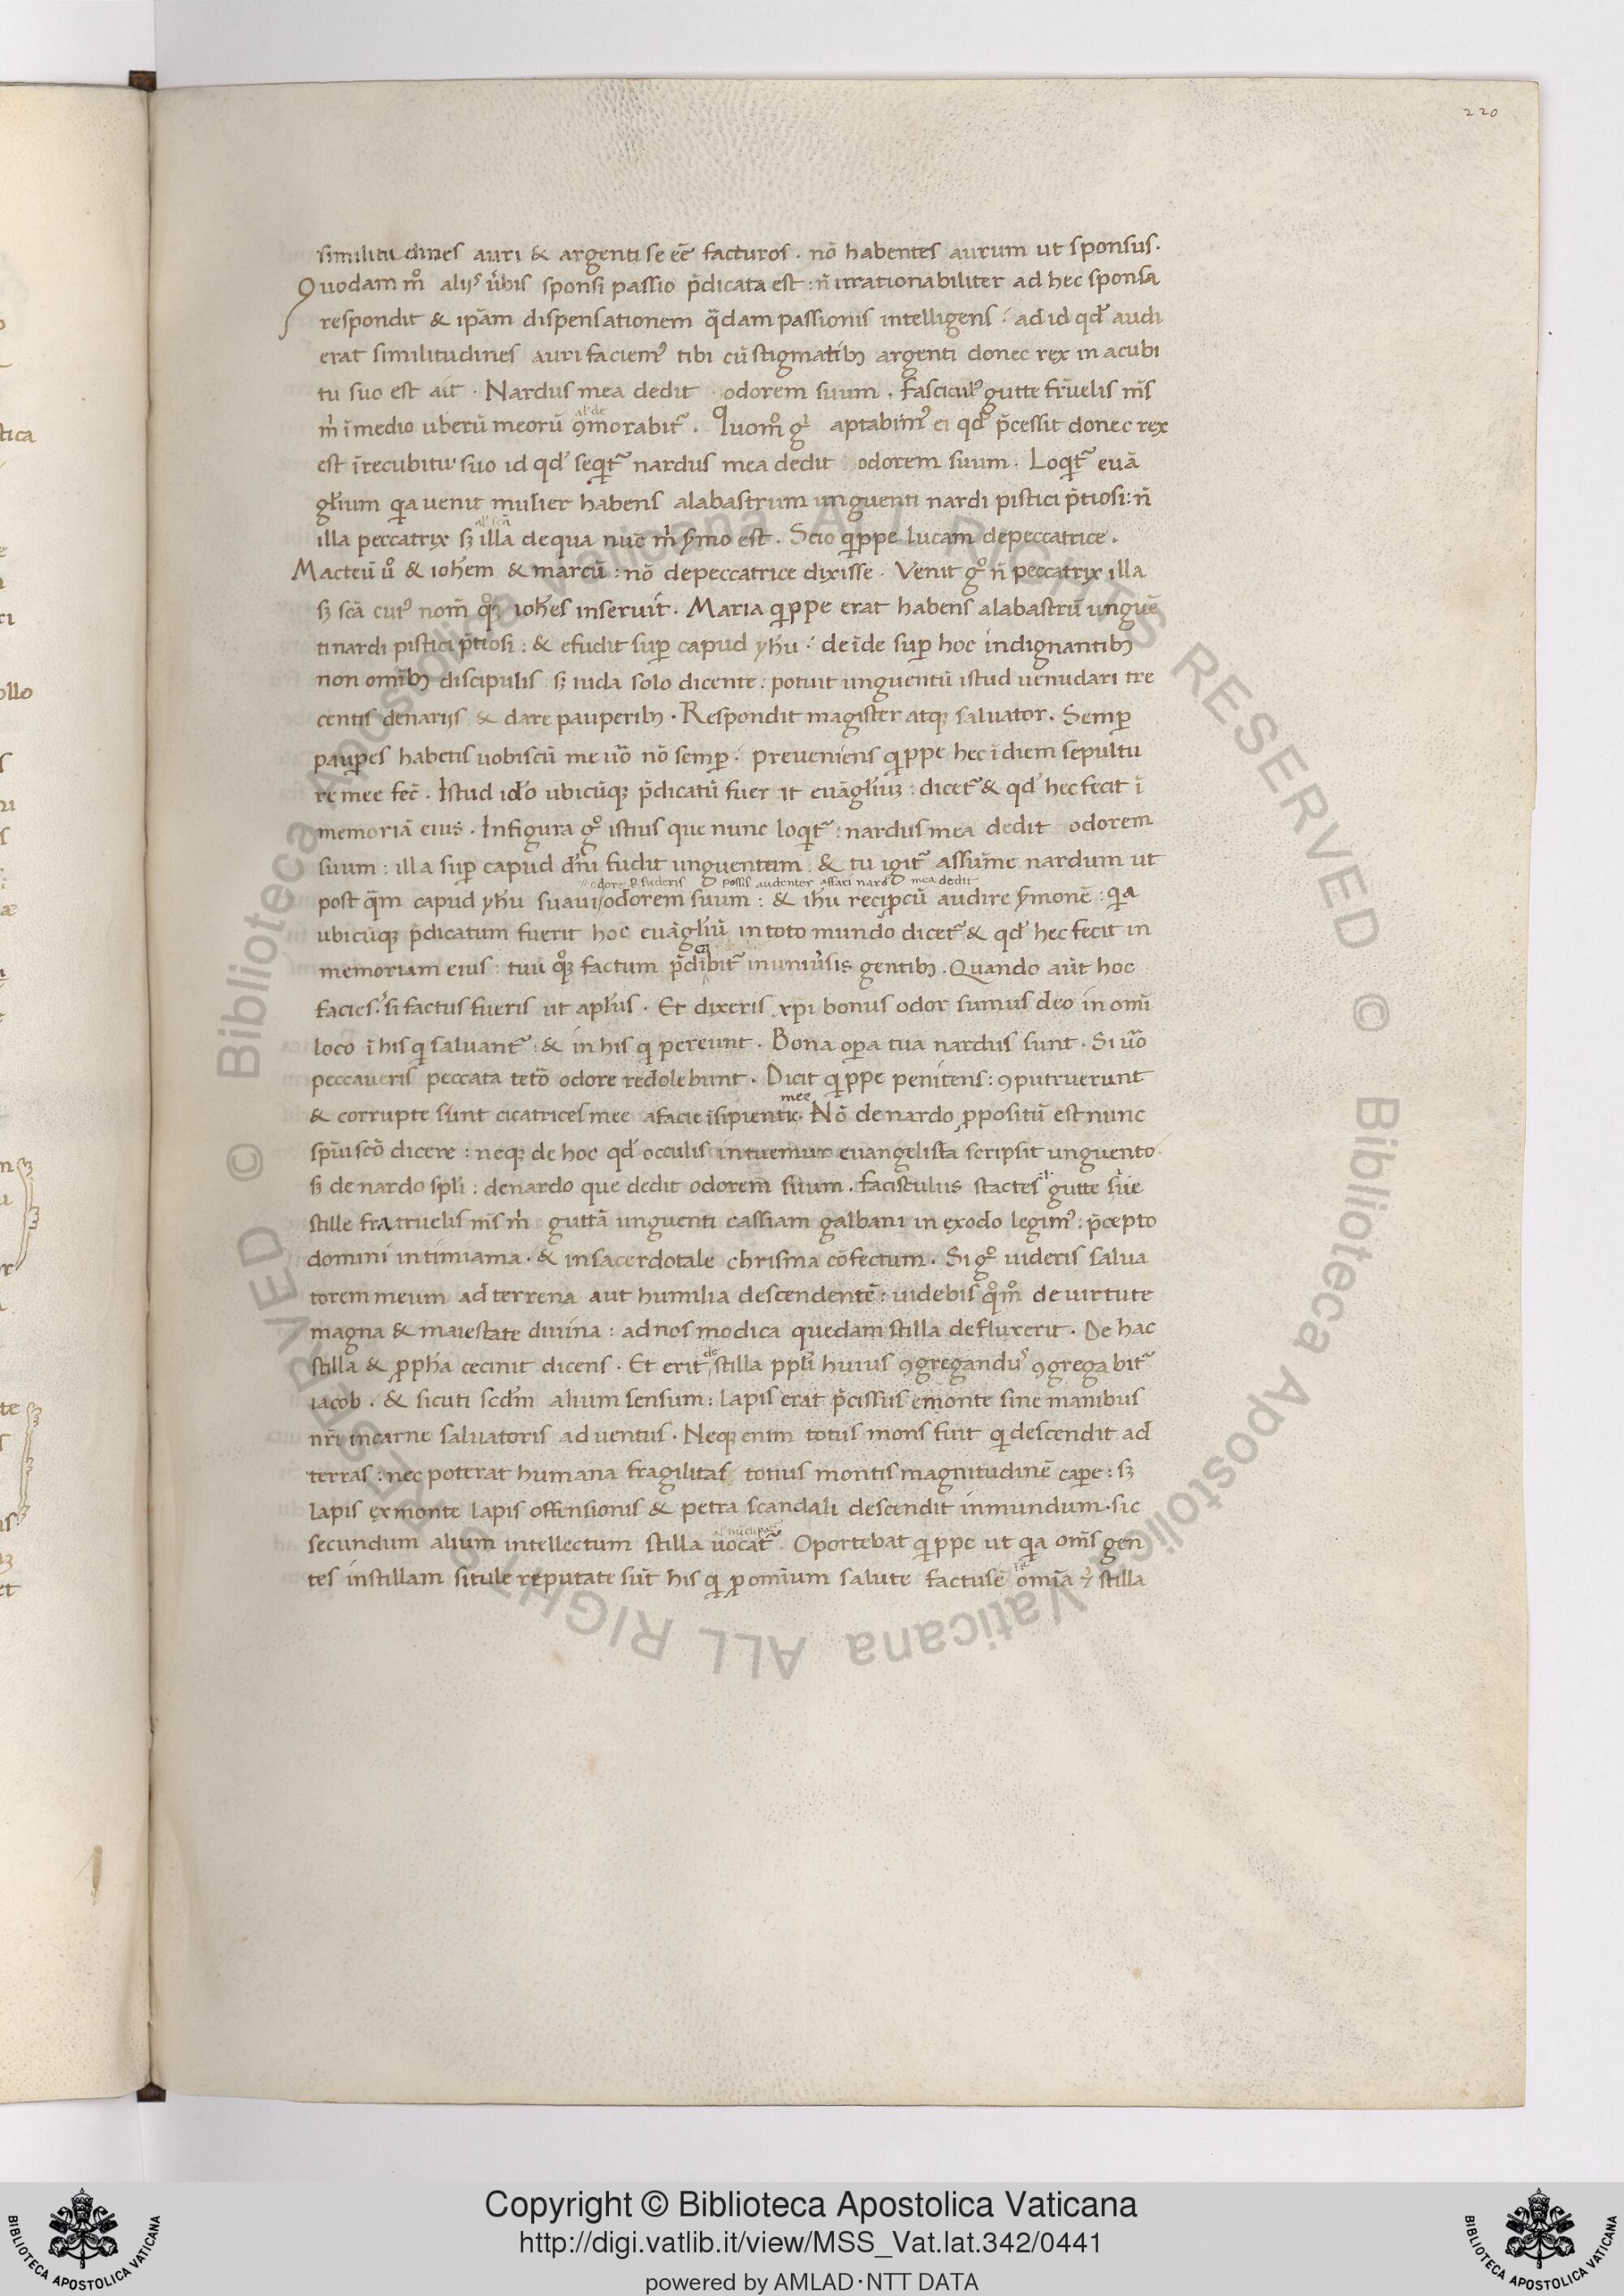 220
similitudines auri & argenti se eē facturos . nō habentes aurum ut sponsus.
Quodam mͦ alijs ũbis sponsi passio p̃dicata est : ñ irrationabiliter ad hec sponsa
respondit & ip̃am dispensationem q̃dam passionis intelligens : ad id qd̛ audi
erat similitudines auri faciem᾽ tibi cū stigmatib; argenti donec rex in acubi
tu suo est ait . Nardus mea dedit odorem suum . fascicul᾽ gutte fr̃uelis m̃s
al̛ de
m̓ ī medio uberū meorū ꝯmorabit᷑ . Quomͦ gͦ aptabim᾽ ei qd̛ p̃cessit donec rex
est ī recubitu suo id qd̛ seqͥt᷑ nardus mea dedit odorem suum . Loqͥt᷑ euā
gl̛ium qͥa uenit mulier habens alabastrum unguenti nardi pistici p̃tiosi : ñ
al̛ scā
illa peccatrix sꝫ illa de qua nūc m̓ ẏmo est . Scio qͥppe lucam de peccatrice .
Macteū ṽͦ & ioh̄em & marcū : nō de peccatrice dixisse . Venit gͦ ñ peccatrix illa
sꝫ scā cui᾽ nom̃ qͦꝫ ioh̄es inseruit . Maria qͥppe erat habens alabastrū unguē
ti nardi pistici p̃tiosi : & efudit suꝑ capud yh̄u : de īde suꝑ hoc indignantib;
non omīb; discipulis : sꝫ iuda solo dicente : potuit unguentū istud uenudari tre
centis denarijs & dare pauperib; . Respondit magister atqꝫ saluator . Semꝑ
pauꝑes habetis uobiscū me ũo nō semꝑ : preueniens qͥppe hec ī diem sepultu
re mee fec̄ . Istud id̛o ubicūqꝫ p̃dicatū fuer it euāgl̛iuꝫ : dicet᷑ & qd̛ hec fecit ī
memoriā eius . In figura gͦ istius que nunc loqͥt᷑ : nardus mea dedit odorem
suum : illa suꝑ capud dn̄i fudit unguentum : & tu igit᷑ assume nardum ut
odore ꝑfuderis possis audenter affari nard mea dedit
post q̃m capud yh̄u suaui odorem suum : & ih̄u recipcū audire ẏmonē : qͥa
ubicūqꝫ p̃dicatum fuerit hoc euāgl̛iū in toto mundo dicet᷑ & qd̛ hec fecit in
memoriam eius : tuū qͦꝫ factum p̃dicabit᷑ in uniũsis gentib; . Quando aūt hoc
facies . si factus fueris ut apl̛us . Et dixeris xp̄i bonus odor sumus deo in omī
loco ī his qͥ saluant᷑ : & in his qͥ pereunt . Bona oꝑa tua nardus sunt . Si ũo
peccaueris peccata tetō odore redolebunt . Dicit qͥppe penitens : ꝯputruerunt
mee
& corrupte sunt cicatrices mee a facie īsipientie . Nō de nardo ꝓpositū est nunc
sp̄ui scō dicere : neqꝫ de hoc qd̛ occulis intuemur euangelista scripsit unguento
sꝫ de nardo spl̛i : de nardo que dedit odorem suum . facisculus stactes l̛ gutte siue
stille fratruelis m̃s m̓ : guttā unguenti cassiam galbani in exodo legim᾽ : p̃cepto
domini in timiama . & in sacerdotale chrisma cōfectum . Si gͦ uideris salua
torem meum ad terrena aut humilia descendentē : uidebis qͦmͦ de uirtute
magna & maiestate diuina : ad nos modica quedam stilla defluxerit . De hac
de
stilla & ꝓph̄a cecinit dicens . Et erit stilla ppl̛i huius ꝯgregandus ꝯgregabit᷑
iacob . & sicuti scd̛m alium sensum : lapis erat p̃cissus e monte sine manibus
nr̄i in carne saluatoris aduentus . Neqꝫ enim totus mons fuit qͥ descendit ad
terras : nec poterat humana fragilitas totius montis magnitudinē caꝑe : sꝫ
lapis ex monte lapis offensionis & petra scandali descendit in mundum . sic
secundum alium intellectum stilla uocat᷑ . Oportebat qͥppe ut qͥa omn̄s gen
tes in stillam situle reputate sūt his qͥ ꝓ omnium salute factus ē omīa & stilla
Copyright © Biblioteca Apostolica Vaticana
http://digi.vatlib.it/view/MSS_Vat.lat.342/0441
powered by AMLAD·NTT DATA
BIBLIOTECA APOSTOLICA VATICANA
BIBLIOTECA APOSTOLICA VATICANA
© Biblioteca Apostolica Vaticana ALL RIGHTS RESERVED © Biblioteca Apostolica Vaticana ALL RIGHTS RESERVED